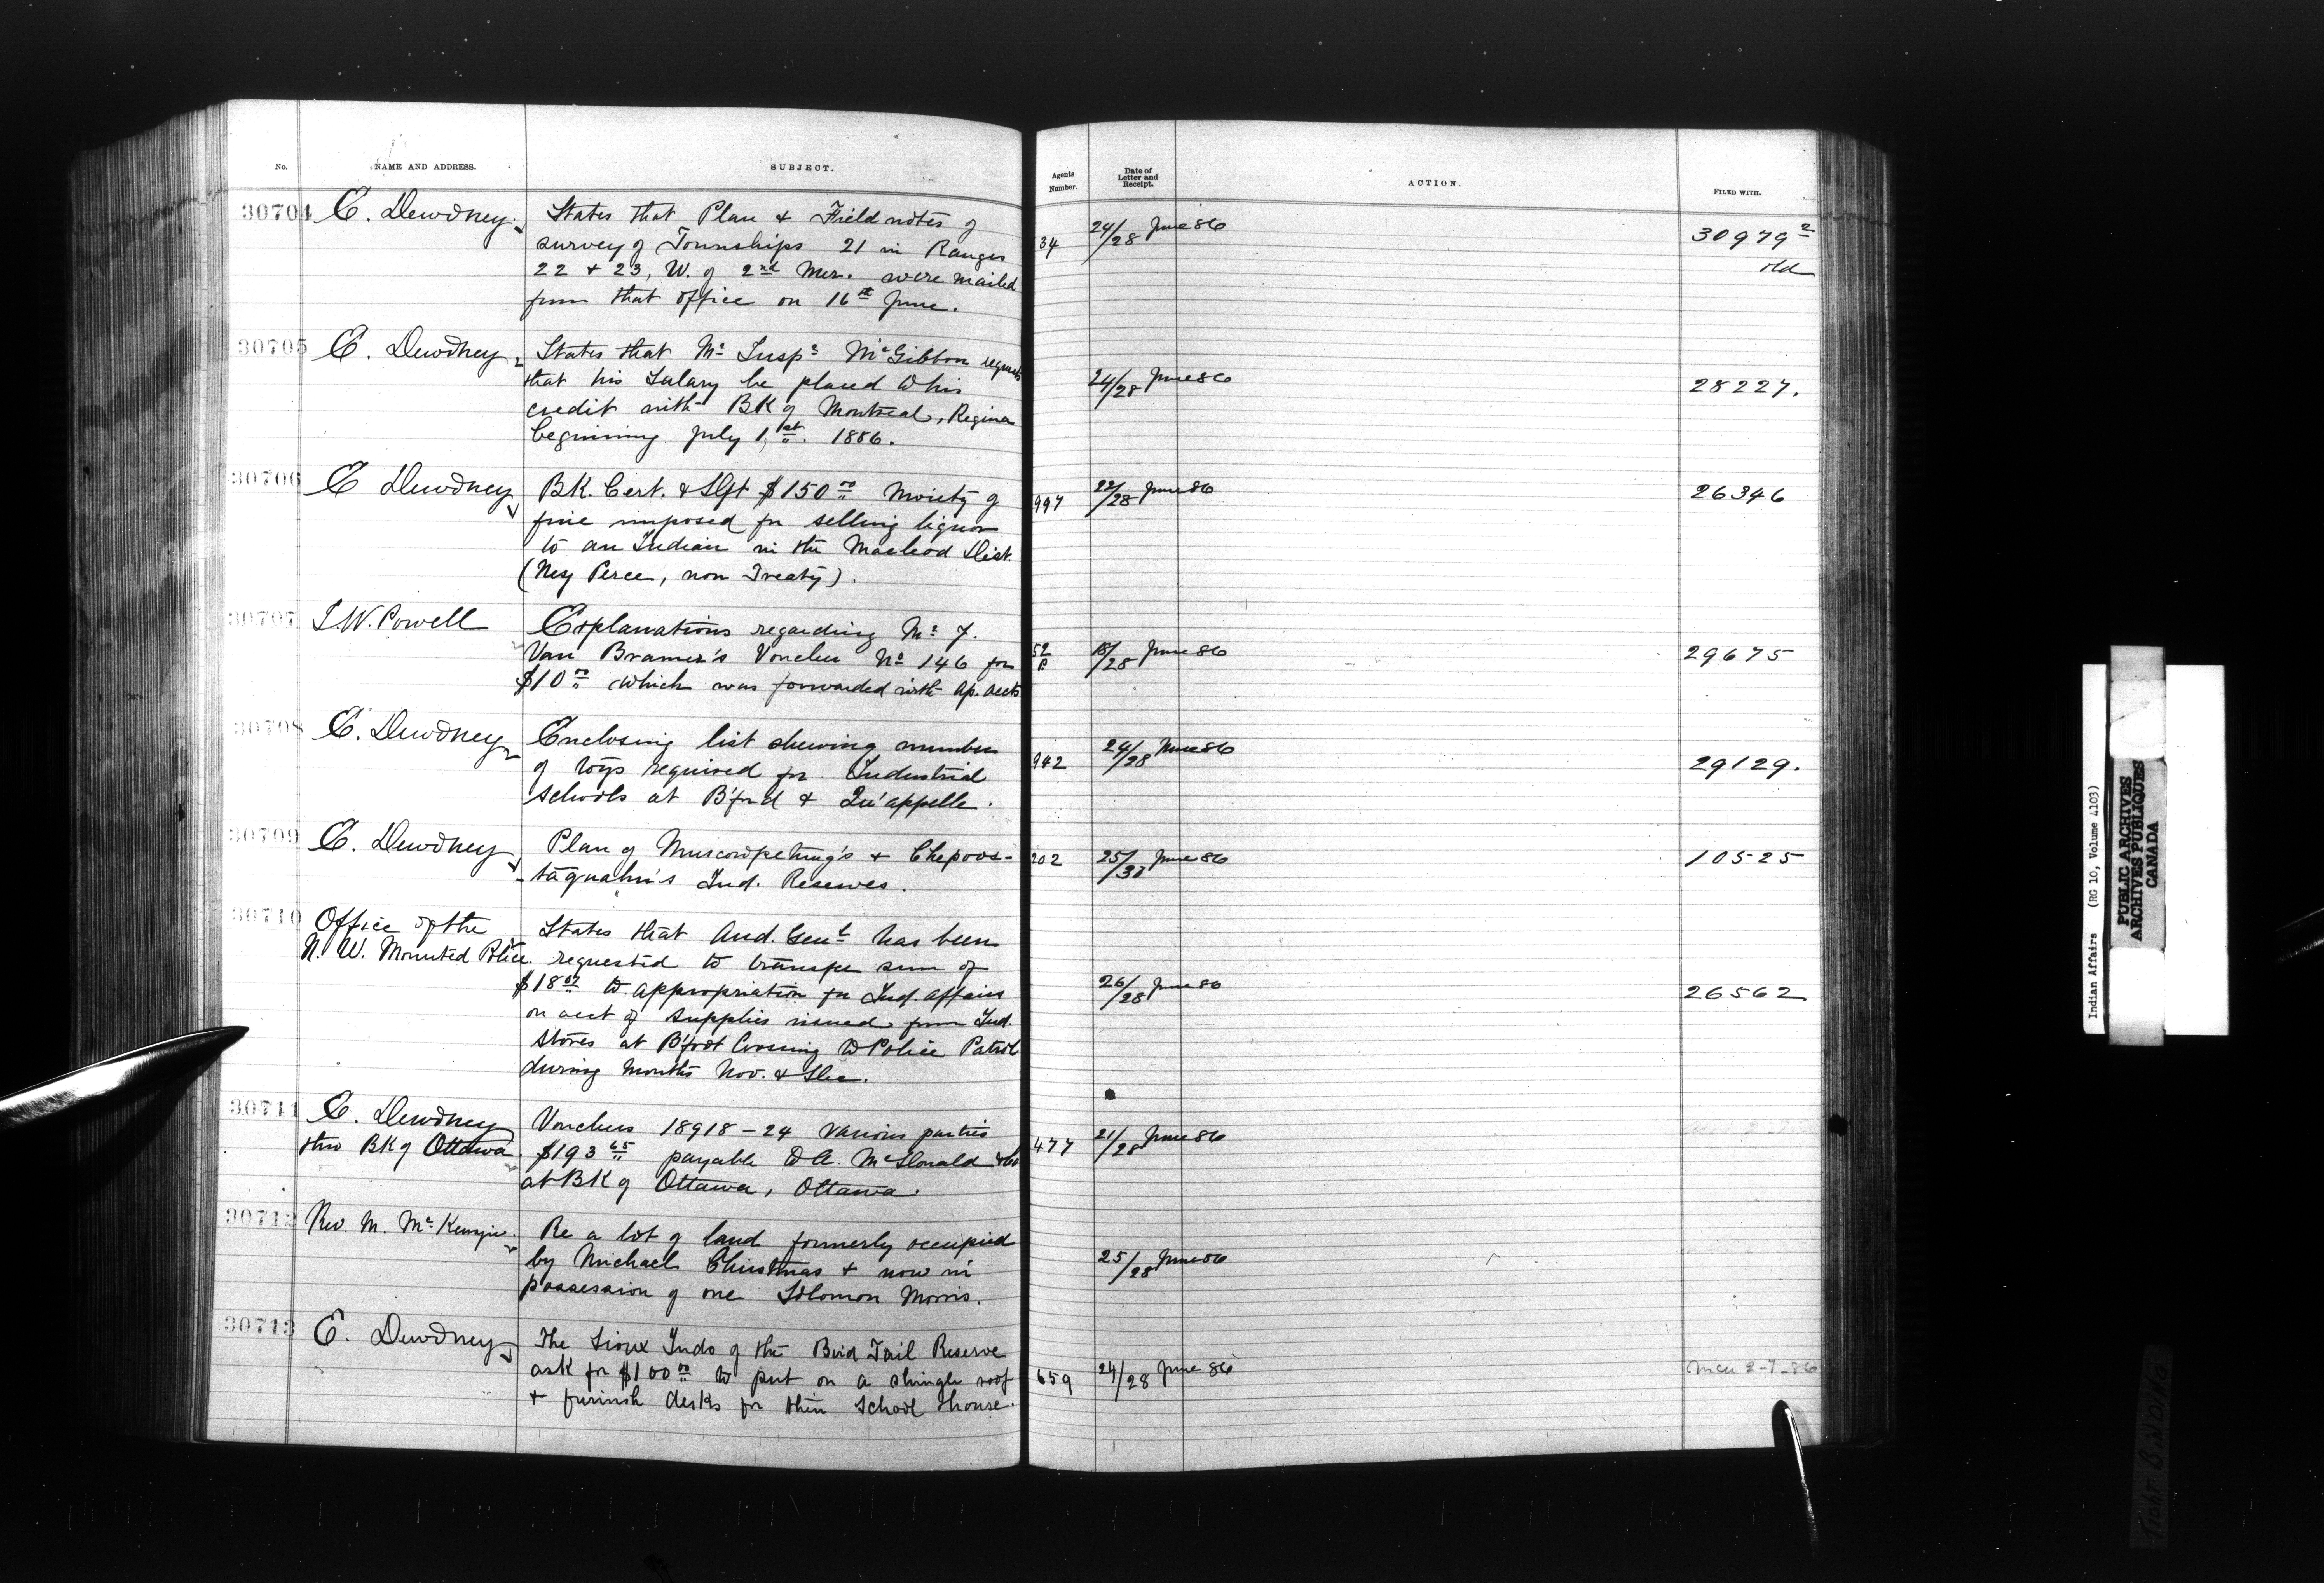 No. NAME AND ADDRESS. SUBJECT. Agents Number. Date of Letter and Receipt. ACTION. FILED WITH.
30704 E. Dewdney. States that Plan & Field notes of
survey of Townships 21 in Ranges
22 & 23, W. of 2nd Mer. were mailed
from that office on 16th June.
34 24/28 June 86 30979 2
old
30705 E. Dewdney States that Mr Inspr McGibbon requests
that his Salary be placed to his
credit with BK of Montreal, Regina
beginning July 1st. 1886.
24/28 June 86 28227.
30706 E Dewdney BK. Cert. & Dft $150 00 Moiety of
fine imposed for selling liquor
to an Indian in the Macleod Dist.
(Nez Perce, non Treaty).
997 22/28 June 86 26346
30707 I.W. Powell Explanations regarding Mr F.
Van Bramer's Voucher No 146 for
$10 00 which was forwarded with Ap. accts
52 P. 18/28 June 86 29675
30708 E. Dewdney Enclosing list shewing number
of toys required for Industrial
Schools at B'ford & Qu'appelle.
942 24/28 June 86 29129.
30709 E. Dewdney Plan of Muscowpetung's & Chepoos-
-taquahn's Ind. Reserves.
202 25/30 June 86 10525
30710 Office of the
N. W. Mounted Police. States that Aud. Genl has been
requested to transfer sum of
$18 to appropriation for Ind. Affairs
on acct of supplies issued from Ind.
Stores at B'foot Crossing to Police Patrol
during months Nov. & Dec.
26/28 June 86 26562
30711 E. Dewdney
thro BK of Ottawa Vouchers 18918-24 various parties
$193 65 payable to A. McDonald & Co
at BK of Ottawa, Ottawa.
477 21/28 June 86
30712 Rev. M. McKenzie. Re a lot of land formerly occupied
by Michael Christmas & now in
possession of one Solomon Morris.
25/28 June 86
30713 E. Dewdney The Sioux Inds of the Bird Tail Reserve
ask for $100 00 to put on a shingle roof
& furnish desks for their School House.
659 24/28 June 86 2-7-86
Indian Affairs (RG 10, Volume 4103)
PUBLIC ARCHIVES
ARCHIVES PUBLIQUES
CANADA
TIGHT BINDING